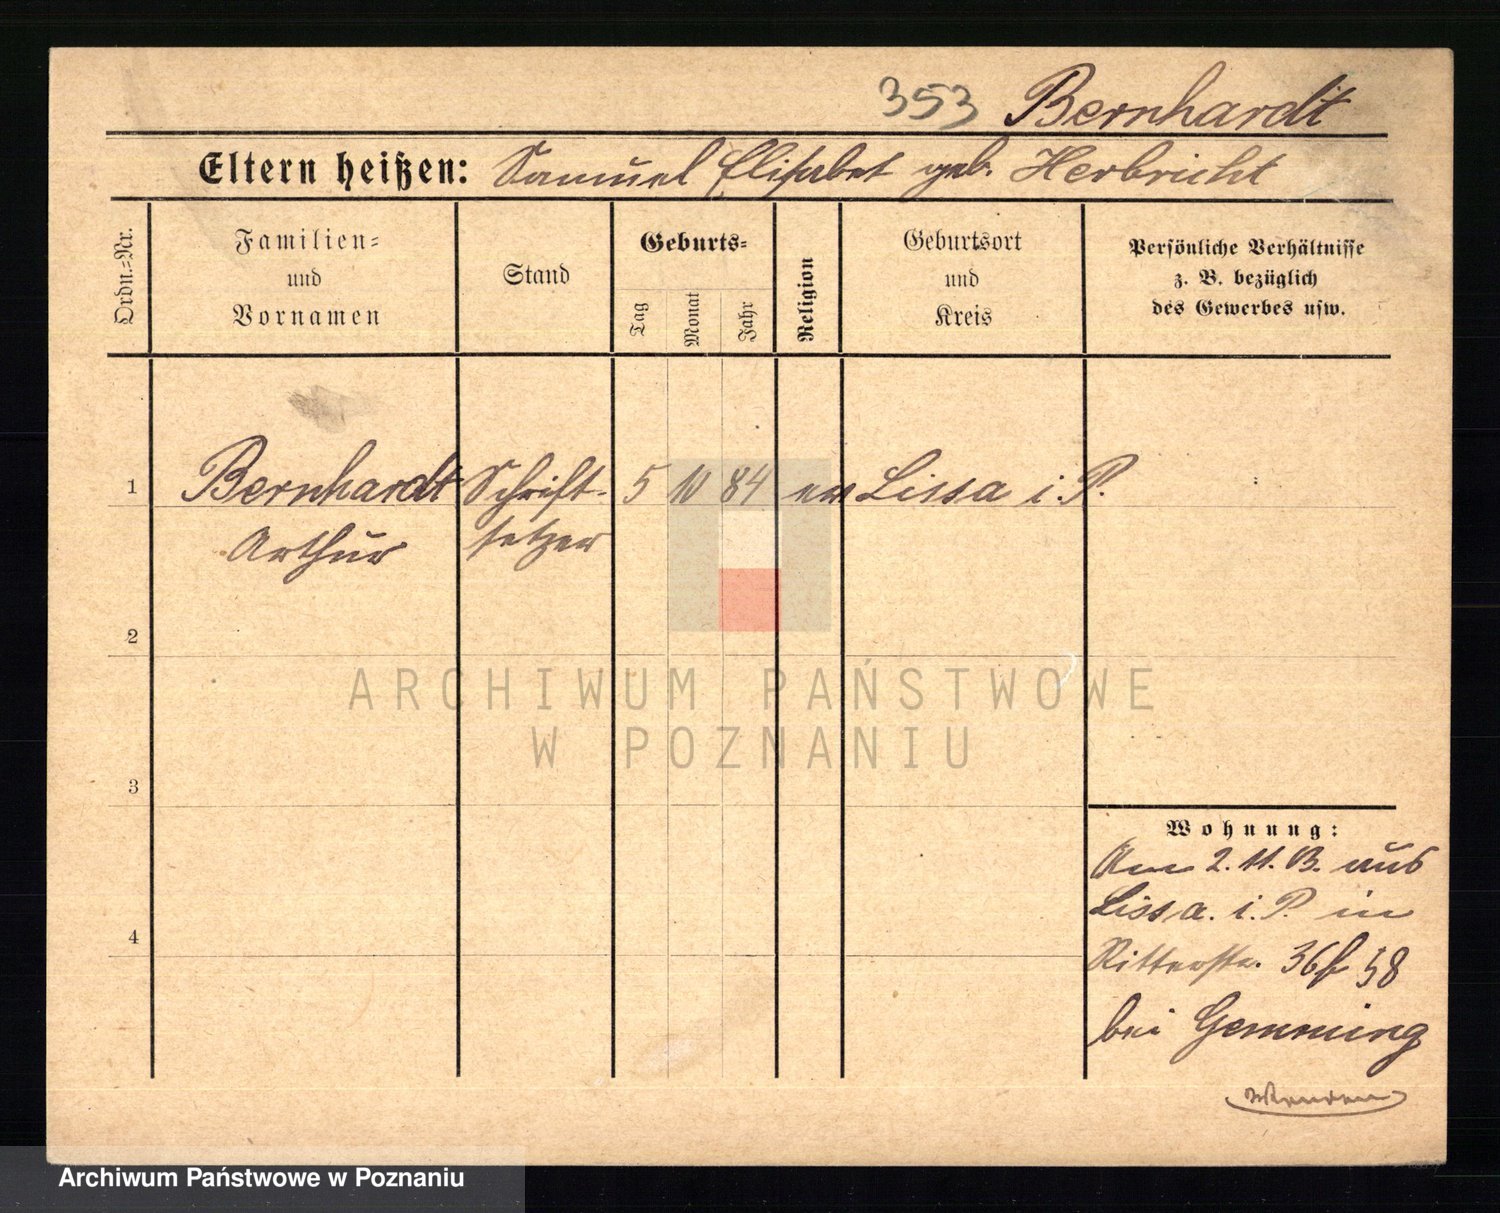 353 Bernhardt
Eltern heißen: Samuel Elisabet geb. Herbricht
Ordn.=Nr.
Familien=
und
Vornamen
Stand
Geburts=
Tag
Monat
Jahr
Religion
Geburtsort
und
Kreis
Persönliche Verhältnisse
z. B. bezüglich
des Gewerbes usw.
1 Bernhardt Schrift- 5 10 84 ev Lissa i. P.
Arthur setzer
2
3
4
Wohnung:
Am 2. 11. 13. aus
Lissa. i. P. in
Ritterstr. 36 58
bei Gemming
Wenden
ARCHIWUM PAŃSTWOWE
W POZNANIU
Archiwum Państwowe w Poznaniu